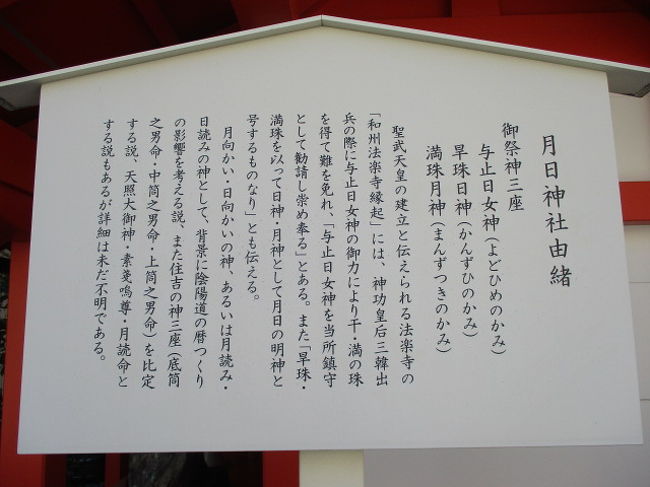 月日神社由緒
御祭神三座
与止日女神(よどひめのかみ)
早珠日神(かんずひのかみ)
満珠月神(まんずつきのかみ)
聖武天皇の建立と伝えられる法楽寺の
「和州法楽寺縁起」には、神功皇后三韓出
兵の際に与止日女神の御力により干・満の珠
を得て難を免れ、「与止日女神を当所鎮守
として勧請し崇め奉る」とある。また「早珠・
満珠を以って日神・月神として月日の明神と
号するものなり」とも伝える。
月向かい・日向かいの神、あるいは月読み・
日読みの神として、背景に陰陽道の暦つくり
の影響を考える説、また住吉の神三座(底筒
之男命・中筒之男命・上筒之男命)を比定
する説、天照大御神・素戔嗚尊・月読命と
する説もあるが詳細は未だ不明である。